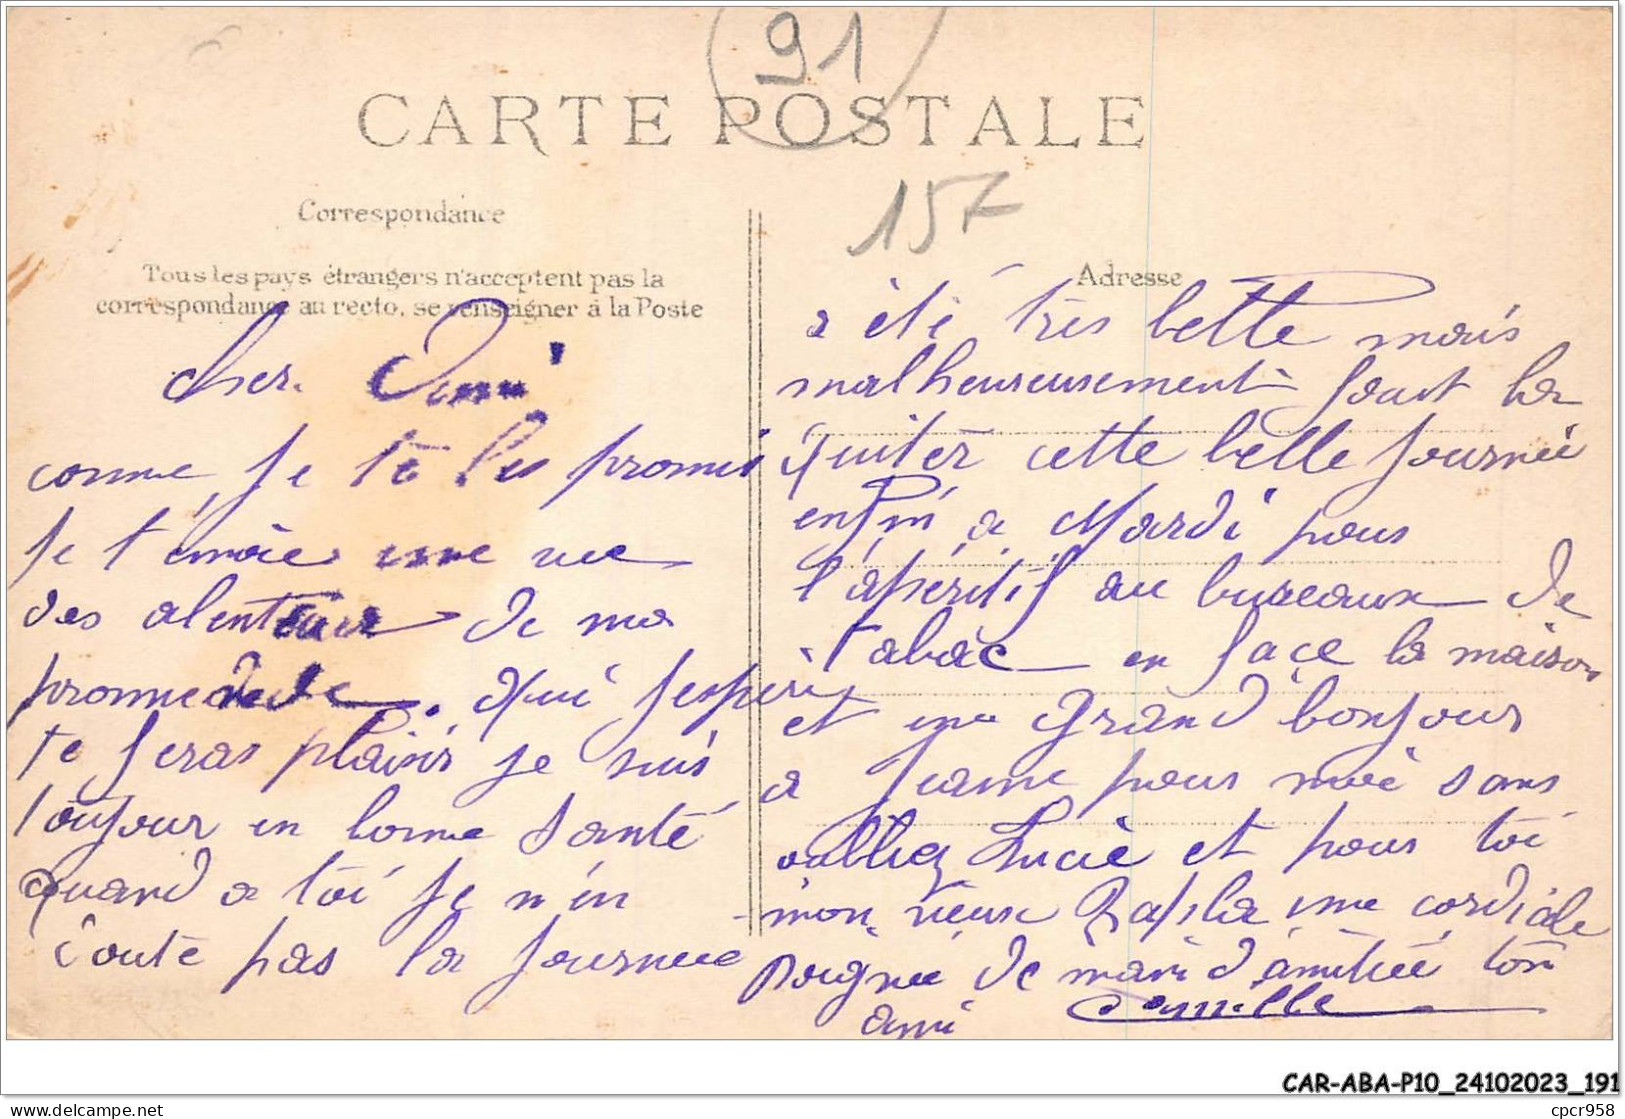 91
CARTE POSTALE
157
Correspondance
Tous les pays étrangers n'acceptent pas la
correspondance au recto, se renseigner à la Poste
Cher Ami
comme je te l'es promis
je t'envoie une vue
des alentour de ma
promenade. qui j'esperé
te feras plaisir je suis
toujour en bonne santé
quand a toi je n'en
doute pas la journee
Adresse
a été très belle mais
malheureusement faut la
quiter cette belle journée
enfin a Mardi pour
l'apéritif au bureaux de
tabac en face la maison
et un grand bonjour
a Jeanne pour moi sans
oublier Lucie et pour toi
mon vieux une cordiale
poigné de main d'amitiée ton
ami Camille
CAR-ABA-P10_24102023_191
delcampe.net
cpcr958